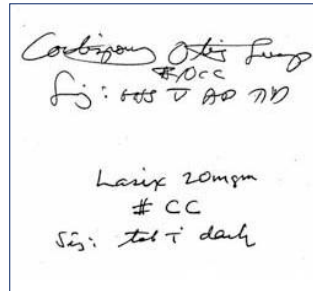 Cortisporin Otic Susp
#10cc
Sig: gtts V AD TID
Lasix 20mgm
# CC
Sig: tab i daily